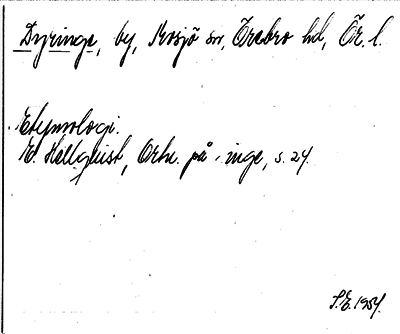 Dyringe, by, Mosjö sn, Örebro hd, Ör. l.
Etymologi.
E. Hellquist, Ortn. på -inge, s. 24.
S.E. 1954.